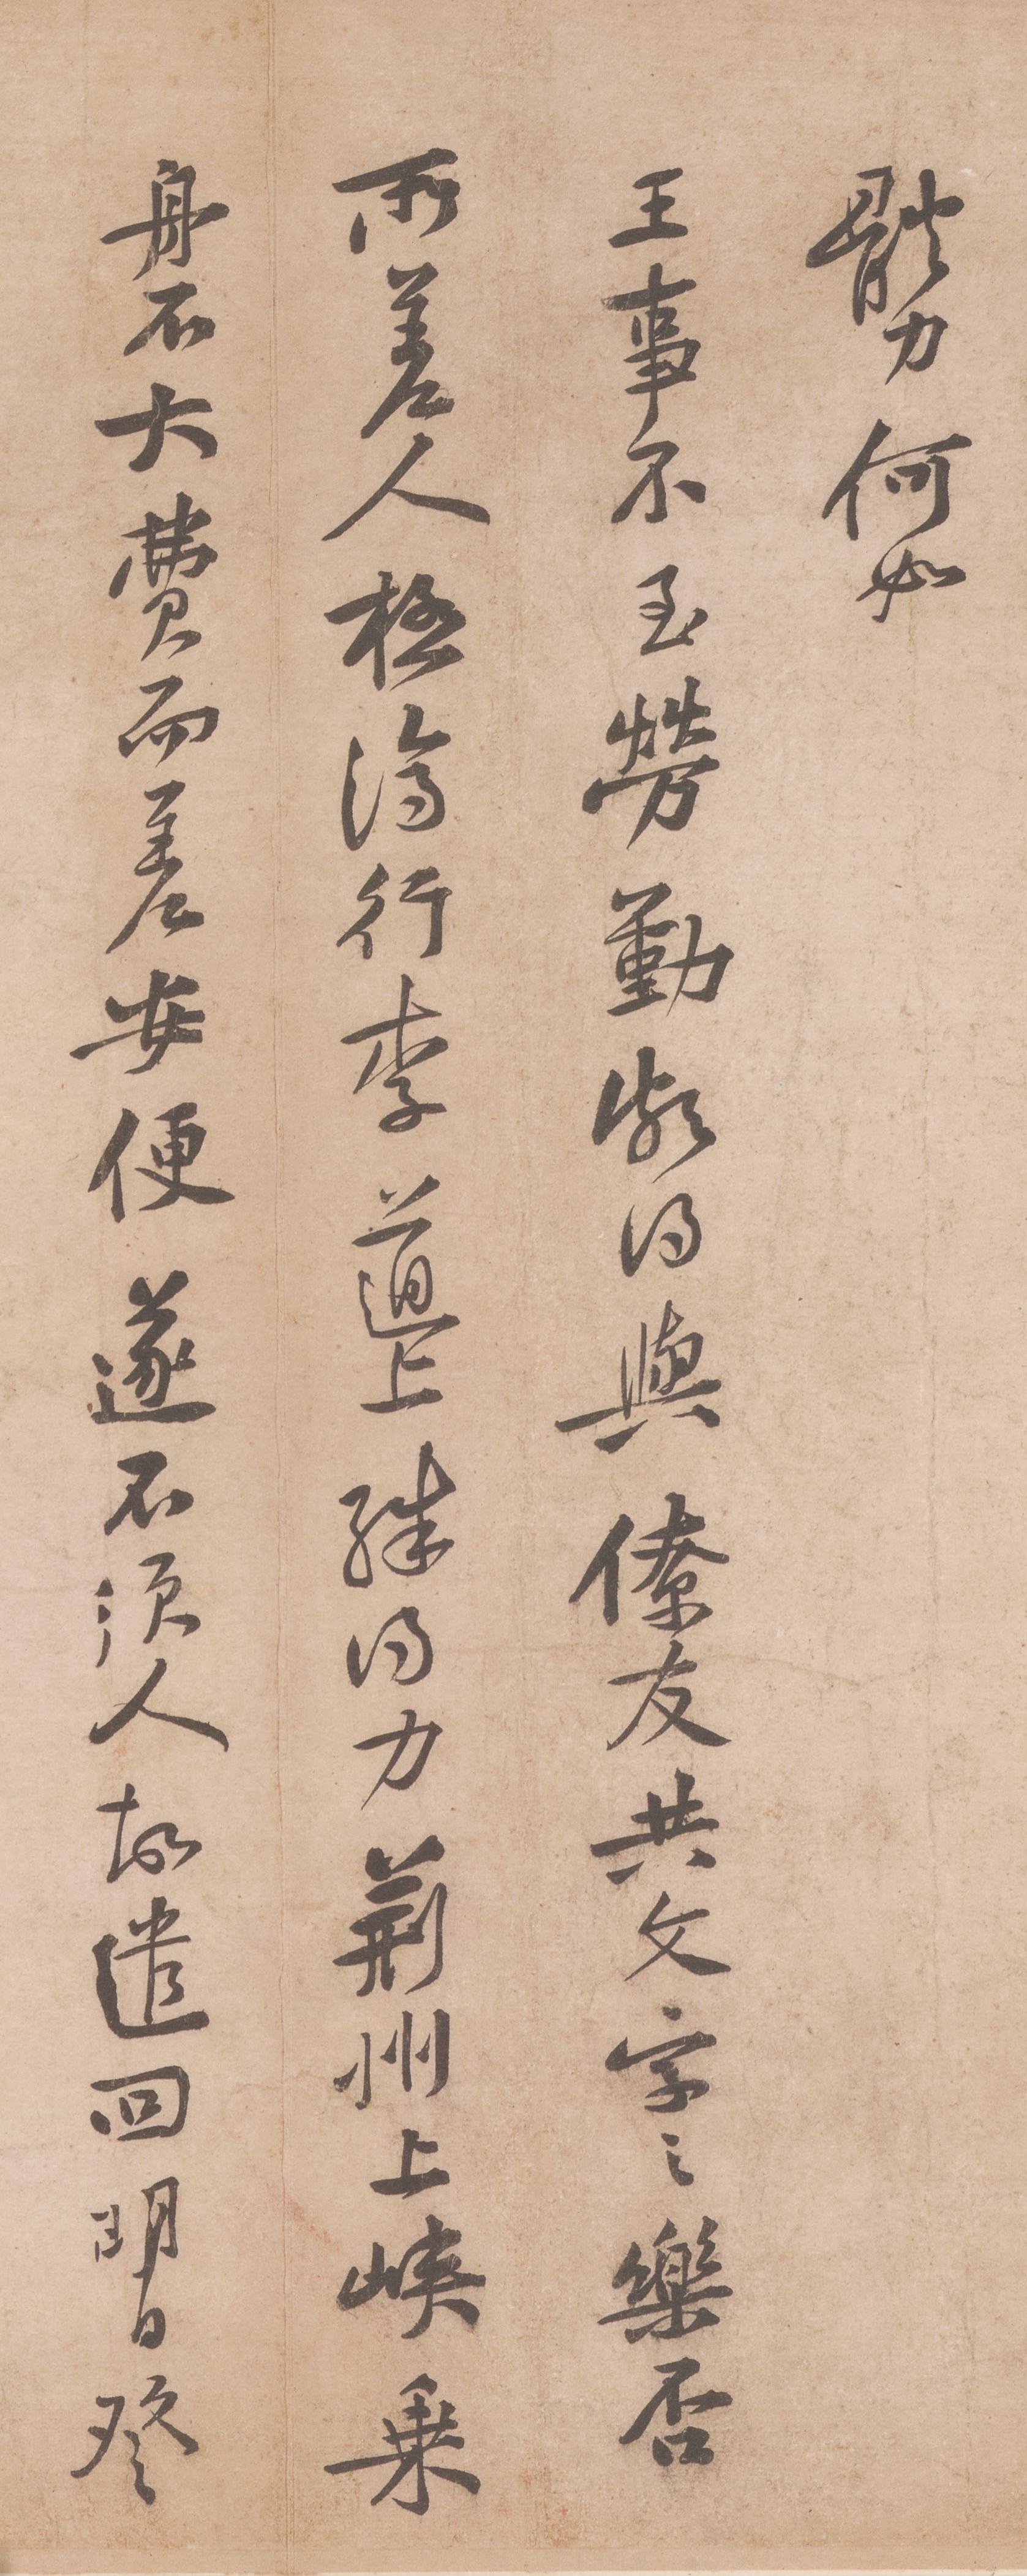 體力何如
王事不至勞勤頗得與僚友共文字之樂否
所差人極濟行李道上殊得力荊州上峽乗
舟不大費而差安便遂不須人故遣回明日登